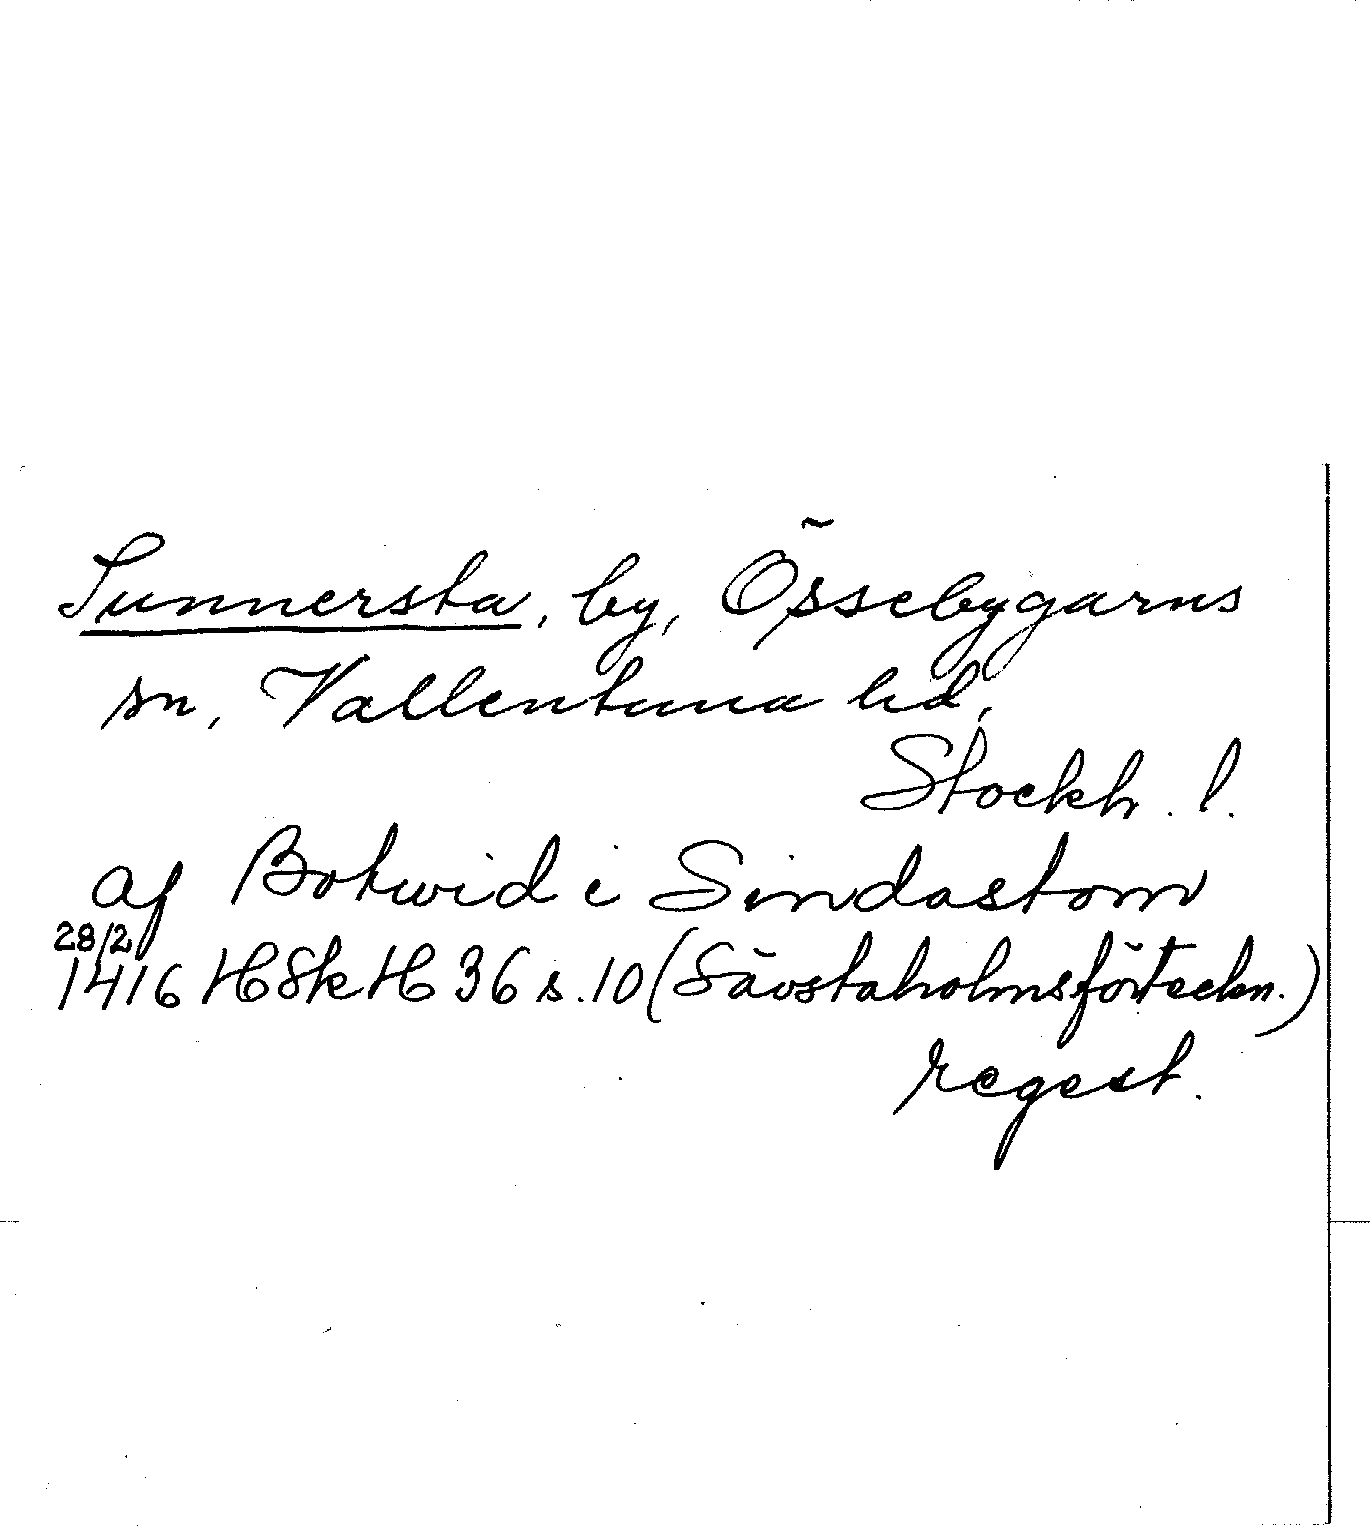 Sunnersta, by, Össebygarns
sn, Vallentuna hd,
Stockh. l.
af Botwid i Sindastom
28/2
1416 HSkH 36 s. 10 (Sävstaholmsförteckn.)
regest.